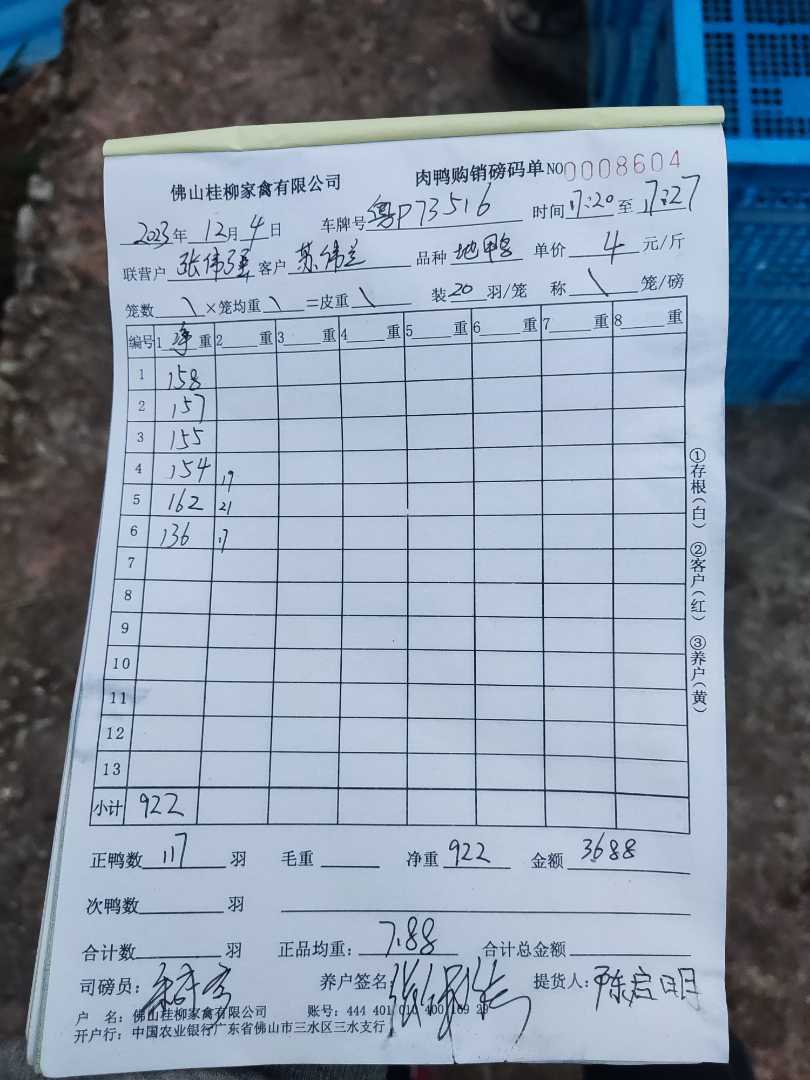 佛山桂柳家禽有限公司 肉鸭购销磅码单 NO 0008604
2023年12月4日 车牌号 粤P73516 时间 17:20 至 17:27
联营户 张伟强 客户 苏伟兰 品种 地鸭 单价 4 元/斤
笼数 \ ×笼均重 \ =皮重 \ 装 20 羽/笼 称 \ 笼/磅
编号 1 净 重 2 重 3 重 4 重 5 重 6 重 7 重 8 重
1 158
2 157
3 155
4 154 19
5 162 21
6 136 17
7
8
9
10
11
12
13
小计 922
正鸭数 117 羽 毛重 净重 922 金额 3688
次鸭数 羽
合计数 羽 正品均重: 7.88 合计总金额
司磅员: 养户签名: 提货人: 陈启明
户 名: 佛山桂柳家禽有限公司 账号: 444 401 010 400 169 29
开户行: 中国农业银行广东省佛山市三水区三水支行
①存根(白) ②客户(红) ③养户(黄)